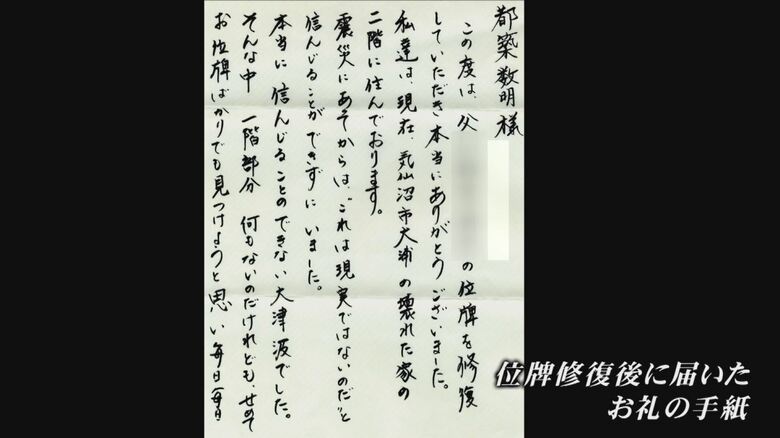 都築数明様
この度は、父
の位牌を修復
していただき本当にありがとうございました。
私達は、現在、気仙沼市大浦の壊れた家の
二階に住んでおります。
震災にあそからは、"これは現実ではないのだ"と
信んじることができずにいました。
本当に信んじることのできない大津波でした。
そんな中　一階部分　何もないのだけれども、せめて
お位牌ばかりでも見つけようと思い毎日毎日
位牌修復後に届いた
お礼の手紙